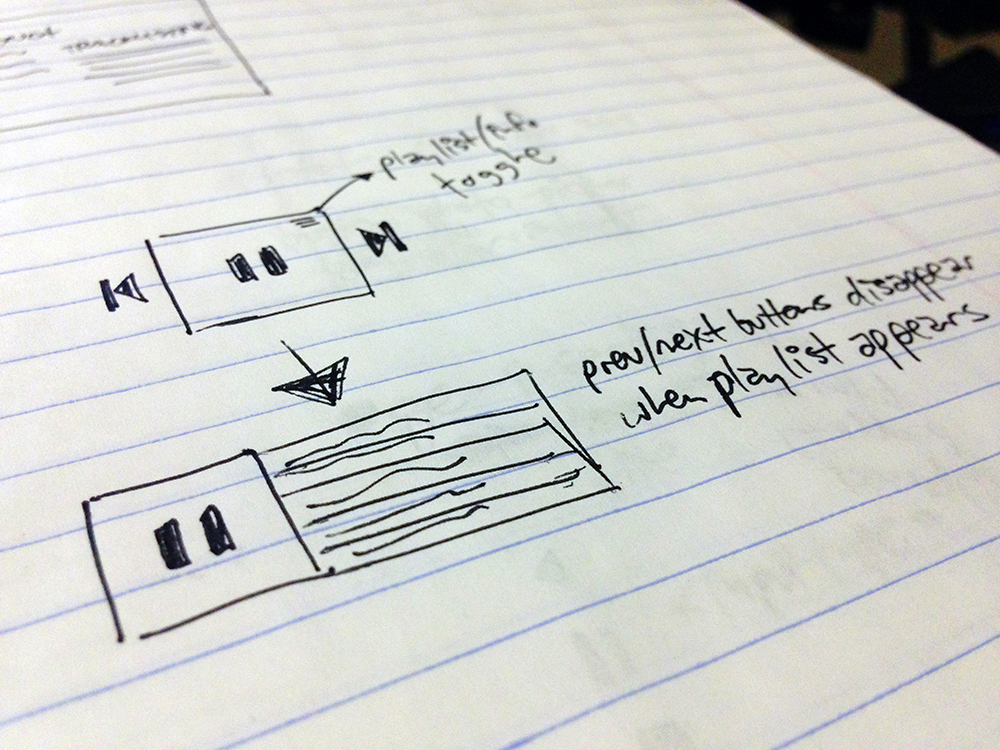 playlist/info
toggle
prev/next buttons disappear
when playlist appears